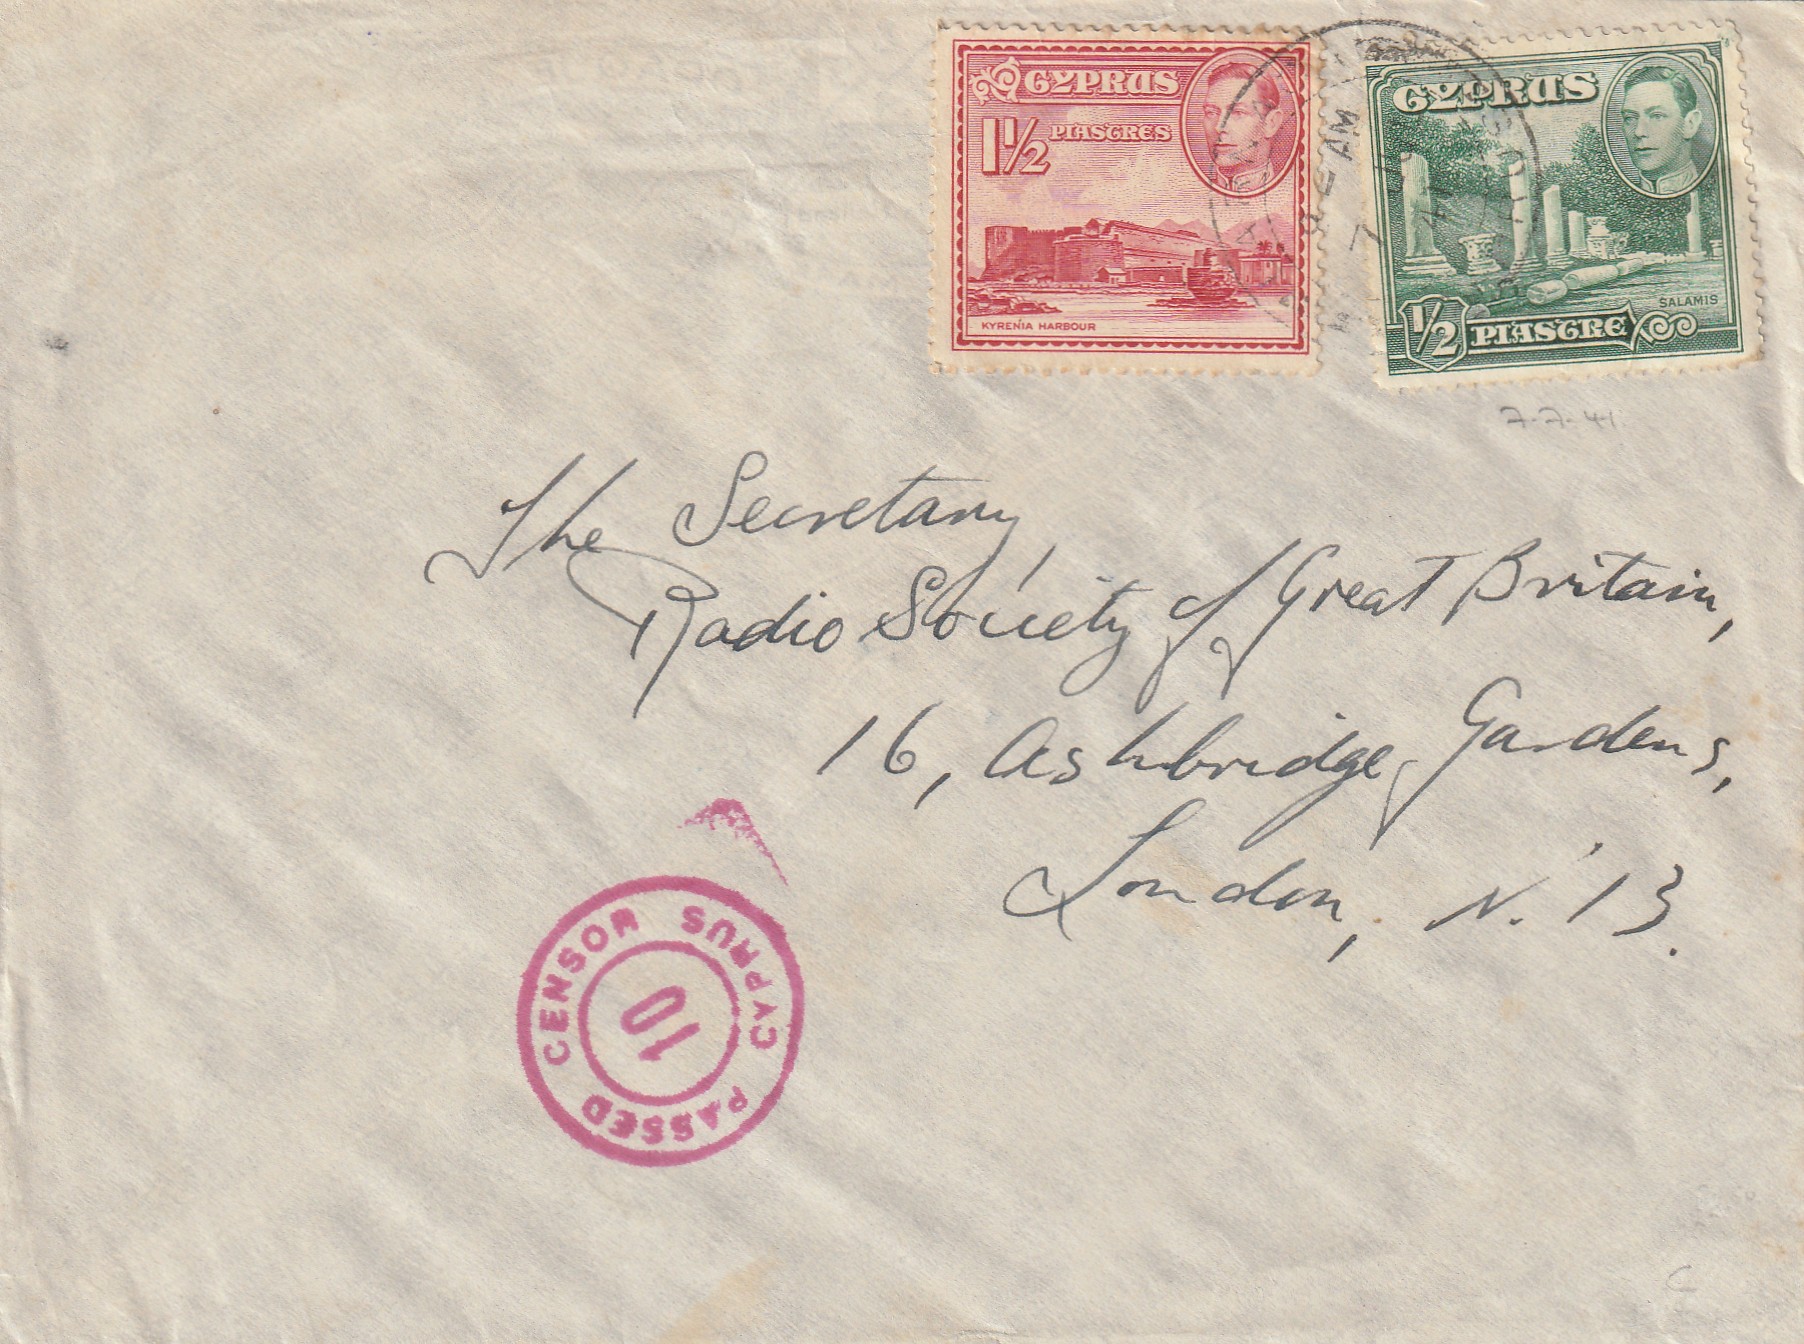 CYPRUS
1½ PIASTRES
KYRENIA HARBOUR
CYPRUS
SALAMIS
½ PIASTRE
AM
7
7-7-41.
The Secretary,
Radio Society of Great Britain,
16, Ashbridge Gardens,
London, N. 13.
PASSED CENSOR CYPRUS
10